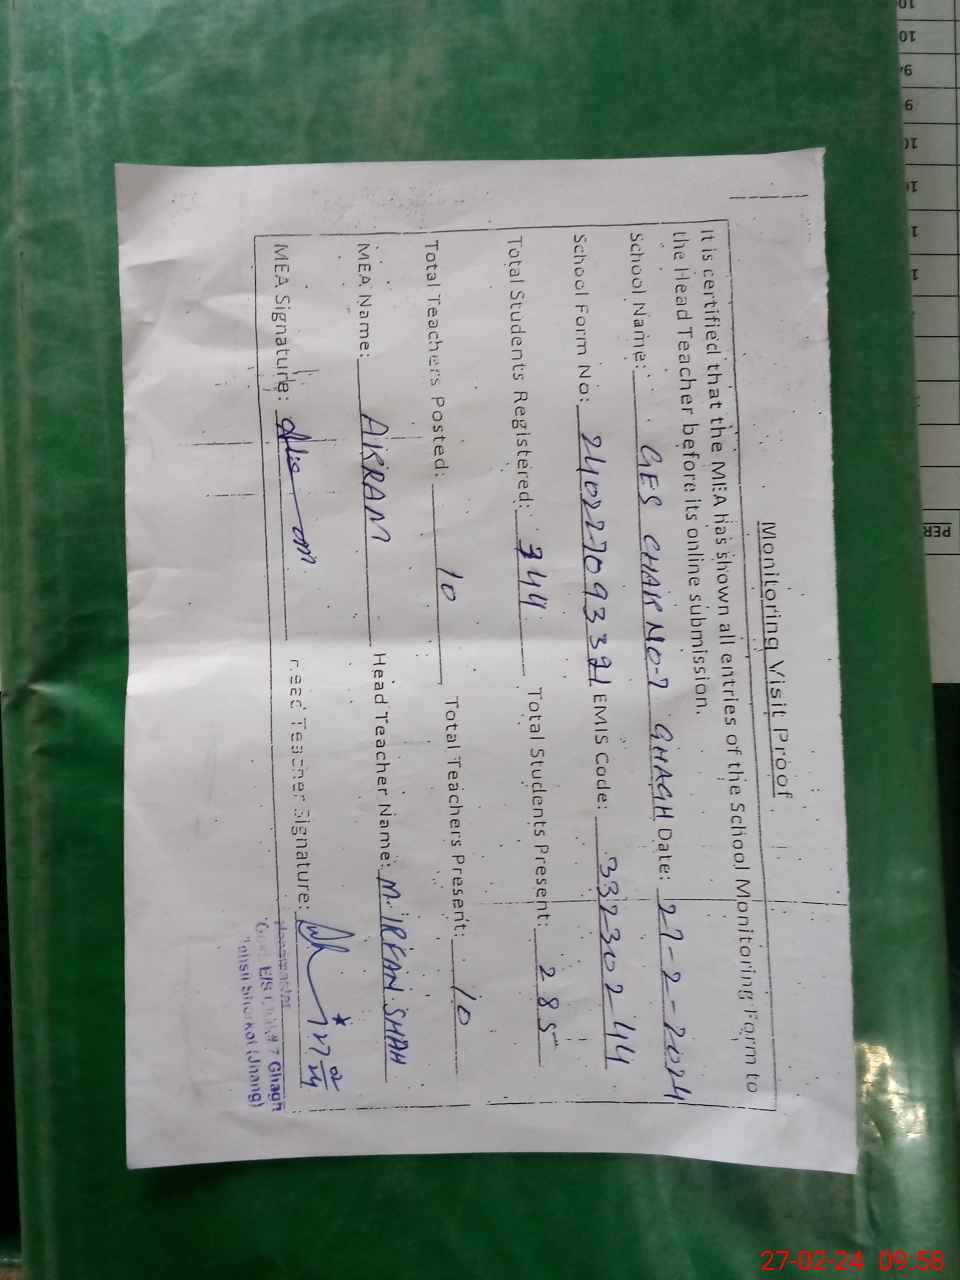 Monitoring Visit Proof
It is certified that the MEA has shown all entries of the School Monitoring Form to
the Head Teacher before its online submission.
School Name: GES CHAK NO-7 GHAGH Date: 27-2-2024
School Form No: 240227093321 EMIS Code: 33230244
Total Students Registered: 344 Total Students Present: 285
Total Teachers Posted: 10 Total Teachers Present: 10
MEA Name: AKRAM Head Teacher Name: M. IRFAN SHAH
MEA Signature: Head Teacher Signature:
Headmaster
Govt. E/S Chak # 7 Ghagh
Tehsil Shorkot (Jhang)
PER
27-02-24 09:58